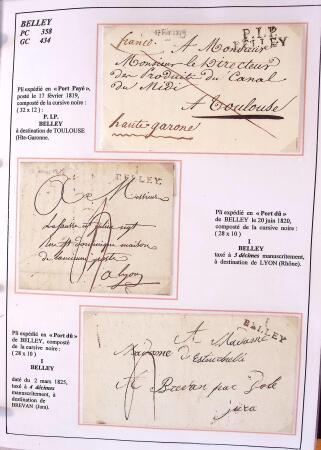 BELLEY
PC 358
GC 434
Pli expédié en « Port Payé »,
posté le 17 février 1819,
composté de la cursive noire :
( 32 x 12 ) :
P. 1P.
BELLEY
à destination de TOULOUSE
(Hte-Garonne.
17 Fév 1819
P.1.P.
BELLEY
franco
A Monsieur
Monsieur le Directeur
des Produit du Canal
du Midi
A Toulouse
haute garone
BELLEY
A Messieurs
maison
a lyon
Pli expédié en « Port dû »
de BELLEY le 20 juin 1820,
composté de la cursive noire :
( 28 x 10 )
1
BELLEY
taxé à 3 décimes manuscritement,
à destination de LYON (Rhône).
Pli expédié en « Port dû »
de BELLEY, composté
de la cursive noire :
( 28 x 10 )
1
BELLEY
daté du 2 mars 1825,
taxé à 4 décimes
manuscritement, à
destination de
BREVAN (Jura).
1
BELLEY
A Madame
Madame
Brevan par Dole
jura